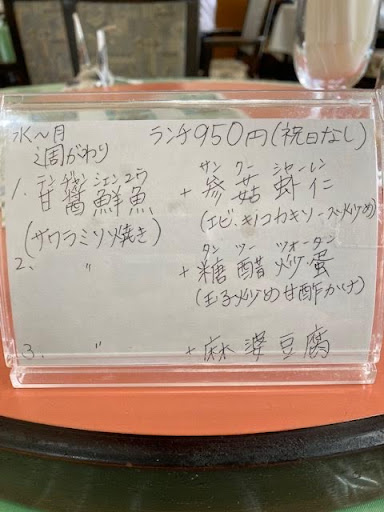 水～月
ランチ950円(祝日なし)
週がわり
テンヂャンシェンユウ
1. 甘醤鮮魚
サンクーシャーレン
+ 参菇虾仁
(サワラミソ焼き)
(エビ、キノコカキソース炒め)
2. 〃
タンツーツォータン
+ 糖醋炒蛋
(玉子炒め甘酢かけ)
3. 〃 + 麻婆豆腐